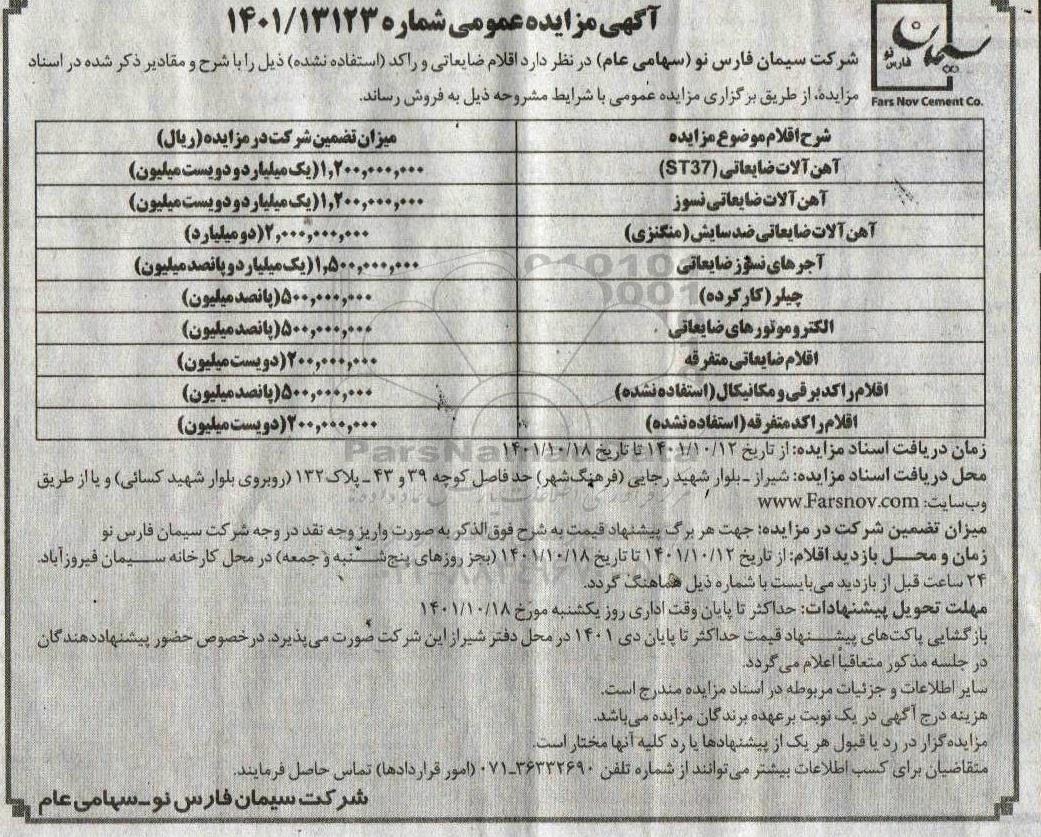 آگهی مزایده عمومی شماره ۱۴۰۱/۱۳۱۲۳
سیمان
فارس نو
Fars Nov Cement Co.
شرکت سیمان فارس نو (سهامی عام) در نظر دارد اقلام ضایعاتی و راکد (استفاده نشده) ذیل را با شرح و مقادیر ذکر شده در اسناد
مزایده، از طریق برگزاری مزایده عمومی با شرایط مشروحه ذیل به فروش رساند.
شرح اقلام موضوع مزایده میزان تضمین شرکت در مزایده (ریال)
آهن آلات ضایعاتی (ST37) ۱,۲۰۰,۰۰۰,۰۰۰ (یک میلیارد و دویست میلیون)
آهن آلات ضایعاتی نسوز ۱,۲۰۰,۰۰۰,۰۰۰ (یک میلیارد و دویست میلیون)
آهن آلات ضایعاتی ضد سایش (منگنزی) ۲,۰۰۰,۰۰۰,۰۰۰ (دو میلیارد)
آجرهای نسوز ضایعاتی ۱,۵۰۰,۰۰۰,۰۰۰ (یک میلیارد و پانصد میلیون)
چیلر (کارکرده) ۵۰۰,۰۰۰,۰۰۰ (پانصد میلیون)
الکتروموتورهای ضایعاتی ۵۰۰,۰۰۰,۰۰۰ (پانصد میلیون)
اقلام ضایعاتی متفرقه ۲۰۰,۰۰۰,۰۰۰ (دویست میلیون)
اقلام راکد برقی و مکانیکال (استفاده نشده) ۵۰۰,۰۰۰,۰۰۰ (پانصد میلیون)
اقلام راکد متفرقه (استفاده نشده) ۲۰۰,۰۰۰,۰۰۰ (دویست میلیون)
زمان دریافت اسناد مزایده: از تاریخ ۱۴۰۱/۱۰/۱۲ تا تاریخ ۱۴۰۱/۱۰/۱۸
محل دریافت اسناد مزایده: شیراز ـ بلوار شهید رجایی (فرهنگ‌شهر) حد فاصل کوچه ۳۹ و ۴۳ ـ پلاک ۱۳۲ (روبروی بلوار شهید کسائی) و یا از طریق
وب‌سایت: www.Farsnov.com
میزان تضمین شرکت در مزایده: جهت هر برگ پیشنهاد قیمت به شرح فوق‌الذکر به صورت واریز وجه نقد در وجه شرکت سیمان فارس نو
زمان و محل بازدید اقلام: از تاریخ ۱۴۰۱/۱۰/۱۲ تا تاریخ ۱۴۰۱/۱۰/۱۸ (بجز روزهای پنج‌شنبه و جمعه) در محل کارخانه سیمان فیروزآباد.
۲۴ ساعت قبل از بازدید می‌بایست با شماره ذیل هماهنگ گردد.
مهلت تحویل پیشنهادات: حداکثر تا پایان وقت اداری روز یکشنبه مورخ ۱۴۰۱/۱۰/۱۸
بازگشایی پاکت‌های پیشنهاد قیمت حداکثر تا پایان دی ۱۴۰۱ در محل دفتر شیراز این شرکت صورت می‌پذیرد. درخصوص حضور پیشنهاددهندگان
در جلسه مذکور متعاقباً اعلام می گردد.
سایر اطلاعات و جزئیات مربوطه در اسناد مزایده مندرج است.
هزینه درج آگهی در یک نوبت برعهده برندگان مزایده می‌باشد.
مزایده‌گزار در رد یا قبول هر یک از پیشنهادها یا رد کلیه آنها مختار است.
متقاضیان برای کسب اطلاعات بیشتر می‌توانند از شماره تلفن ۳۶۳۳۲۶۹۰-۰۷۱ (امور قراردادها) تماس حاصل فرمایند.
شرکت سیمان فارس نو ـ سهامی عام